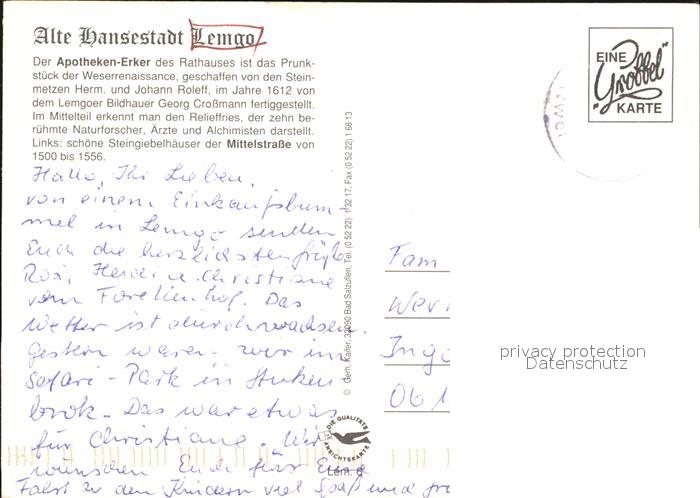 Alte Hansestadt Lemgo
Der Apotheken-Erker des Rathauses ist das Prunk-
stück der Weserrenaissance, geschaffen von den Stein-
metzen Herm. und Johann Roleff, im Jahre 1612 von
dem Lemgoer Bildhauer Georg Croßmann fertiggestellt.
Im Mittelteil erkennt man den Relieffries, der zehn be-
rühmte Naturforscher, Ärzte und Alchimisten darstellt.
Links: schöne Steingiebelhäuser der Mittelstraße von
1500 bis 1556.
Hallo, Ihr Lieben,
von einem Einkaufsbum-
mel in Lemgo senden
Euch die herzlichsten Grüße
Rosi, Heidi u. Christiane
vom Forellenhof. Das
Wetter ist durchwachsen.
Gestern waren wir im
Safari-Park in Stuken-
brok. Das war etwas
für Christiane. Wir
wünschen Euch für Eure
Fahrt zu den Kindern viel Spaß und
© Gerh. Kaifer, Bad Salzuflen, Tel. (0 52 22) 1 32 17, Fax (0 52 22) 1 68 13
DIE QUALITÄTS
ANSICHTSKARTE
Lem.
EINE
"Grobbel"
KARTE
Fam
Wer
Ing
06
privacy protection
Datenschutz